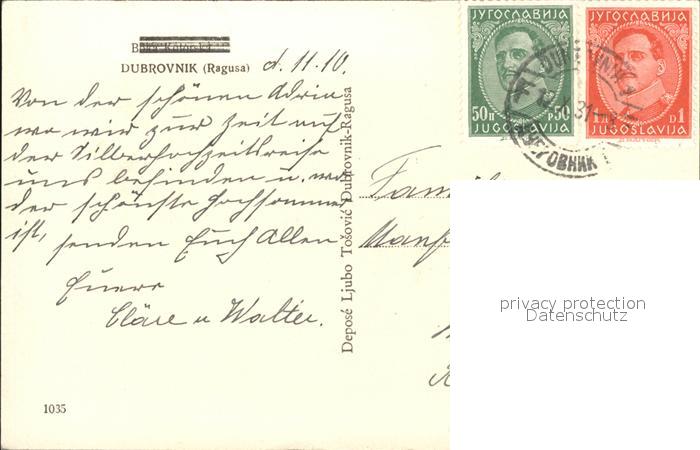 DUBROVNIK (Ragusa) d. 11.10.
Von der schönen Adria
wo wir zur Zeit auf
der Silberhochzeitsreise
uns befinden u. wo
der schönste Hochsommer
ist, senden Euch Allen
Euere
Cläre u Walter.
1035
Deposé Ljubo Tošović Dubrovnik-Ragusa
ЈУГОСЛАВИЈА
50п P50
JUGOSLAVIJA
ЈУГОСЛАВИЈА
D1
JUGOSLAVIJA
Fam
Manf
privacy protection
Datenschutz